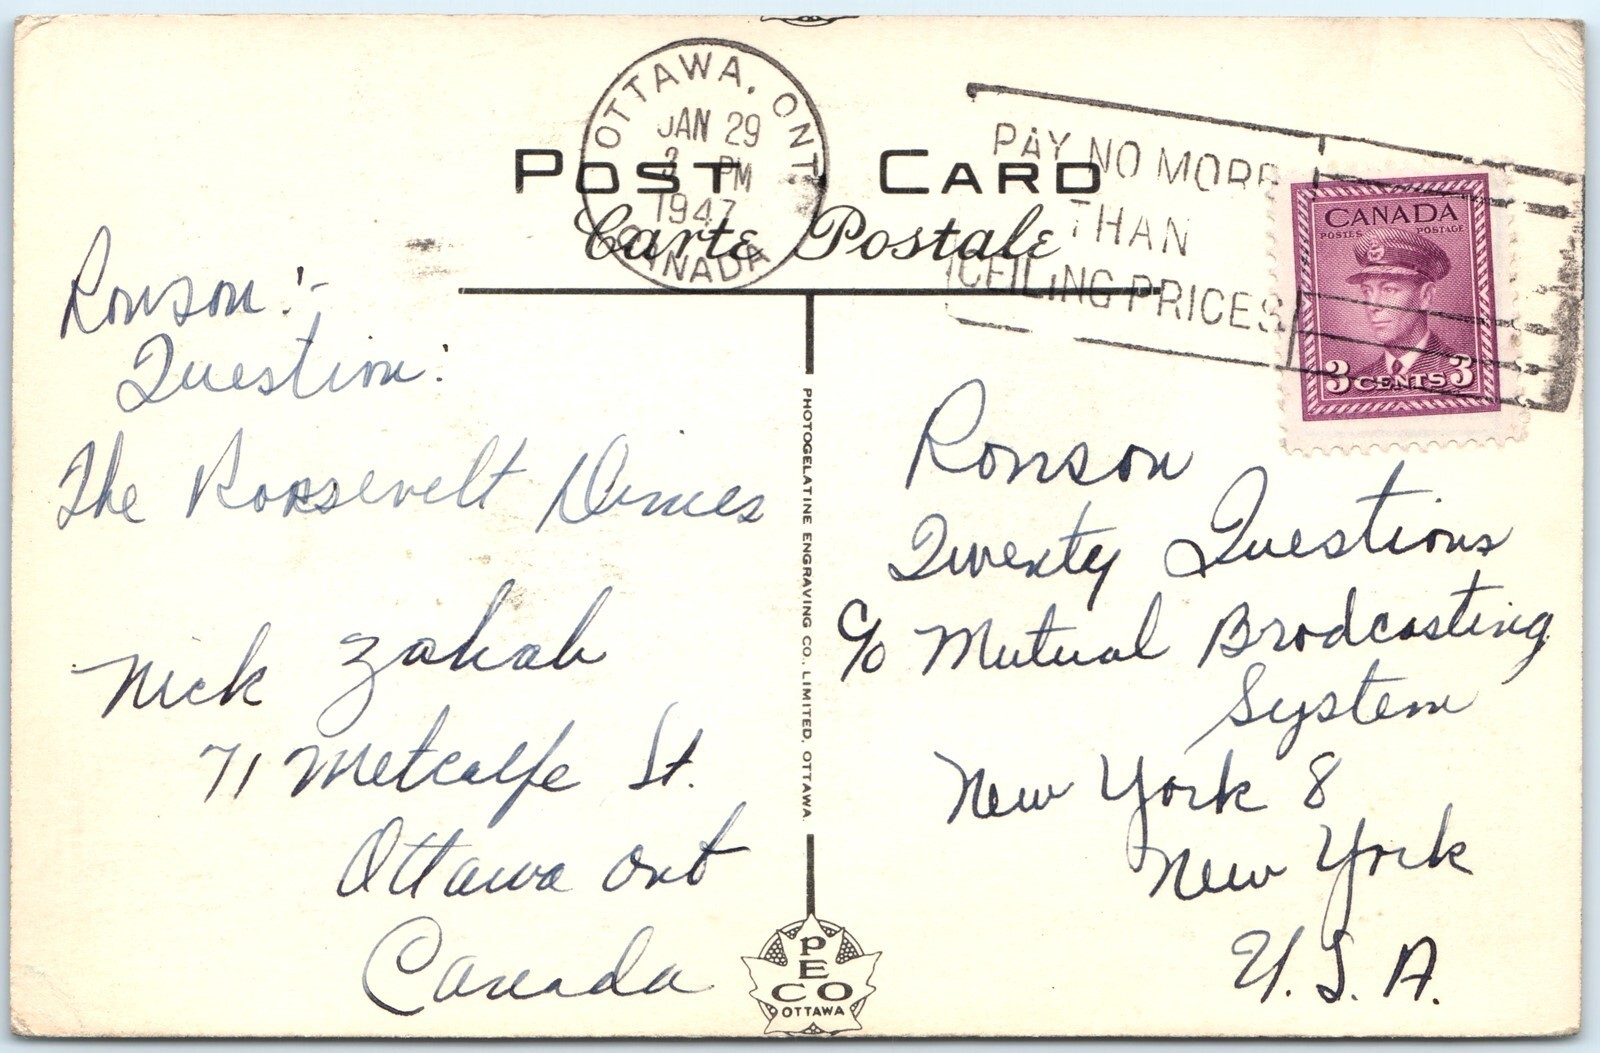 OTTAWA, ONT.
JAN 29
PM
1947
CANADA
PAY NO MORE
THAN
CEILING PRICES
POST CARD
Carte Postale
CANADA
POSTES POSTAGE
3 CENTS 3
Ronson:-
Question:
The Roosevelt Dimes
Nick Zahab
71 Metcalfe St.
Ottawa Ont
Canada
PHOTOGELATINE ENGRAVING CO., LIMITED, OTTAWA.
Ronson
Twenty Questions
c/o Mutual Brodcasting
System
New York 8
New York
U.S.A.
PECO
OTTAWA